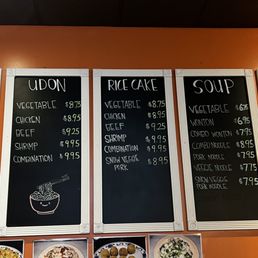 UDON
VEGETABLE $8.75
CHICKEN $8.95
BEEF $9.25
SHRIMP $9.95
COMBINATION $9.95
RICE CAKE
VEGETABLE $8.75
CHICKEN $8.95
BEEF $9.25
SHRIMP $9.95
COMBINATION $9.95
SNOW VEGGIE PORK $8.95
SOUP
VEGETABLE $6.75
WONTON $6.95
COMBO WONTON $7.95
COMBO NOODLE $8.95
PORK NOODLE $7.75
VEGGIE NOODLE $7.75
SNOW VEGGIE
PORK NOODLE $7.95